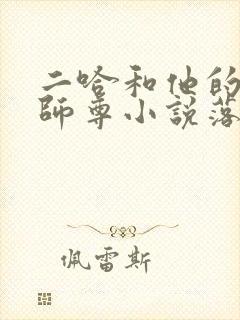 二哈和他的
師尊小説落
佩雷斯